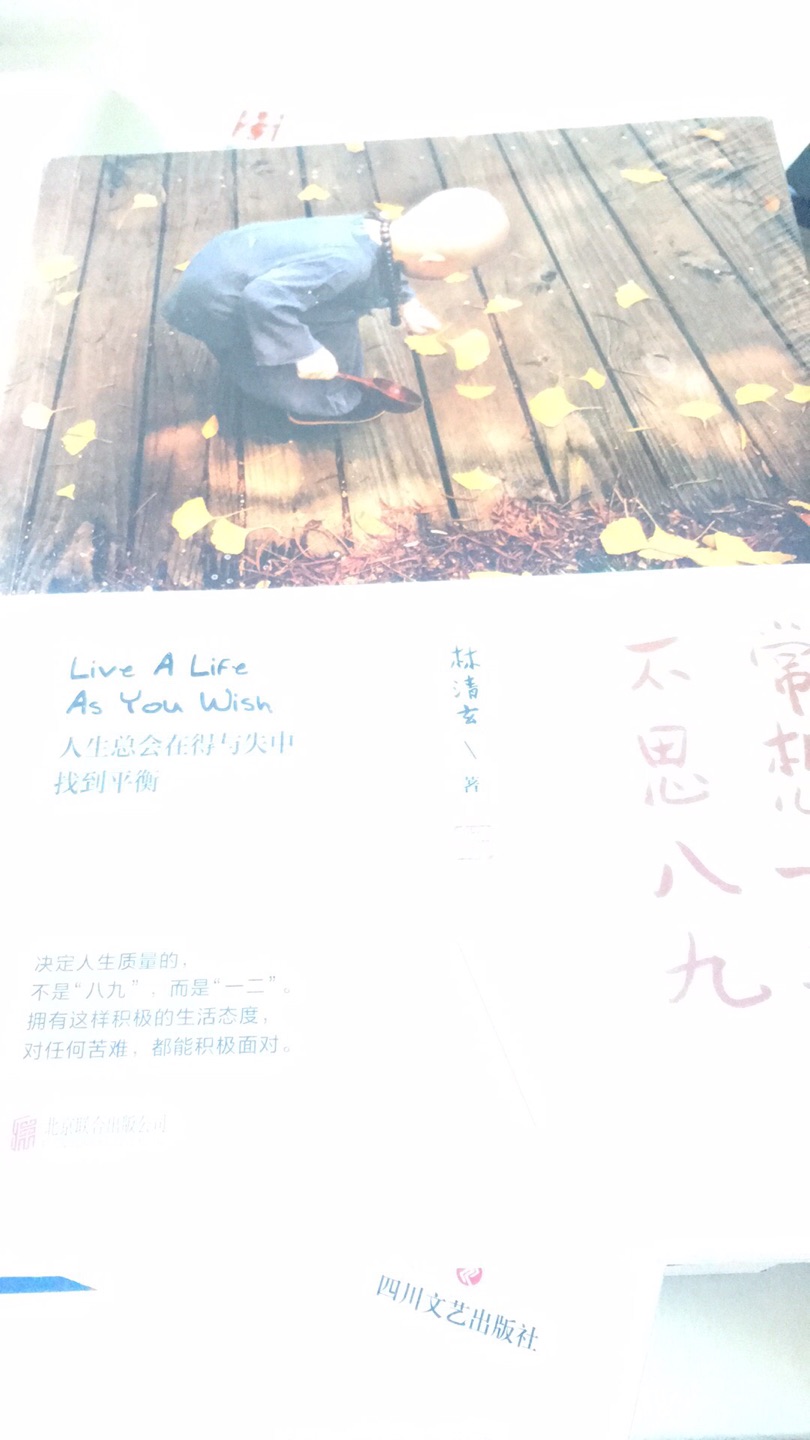 Live A Life
As You Wish
人生总会在得与失中
找到平衡
林清玄\著
常想一
不思八九
决定人生质量的，
不是“八九”，而是“一二”。
拥有这样积极的生活态度，
对任何苦难，都能积极面对。
北京联合出版公司
四川文艺出版社